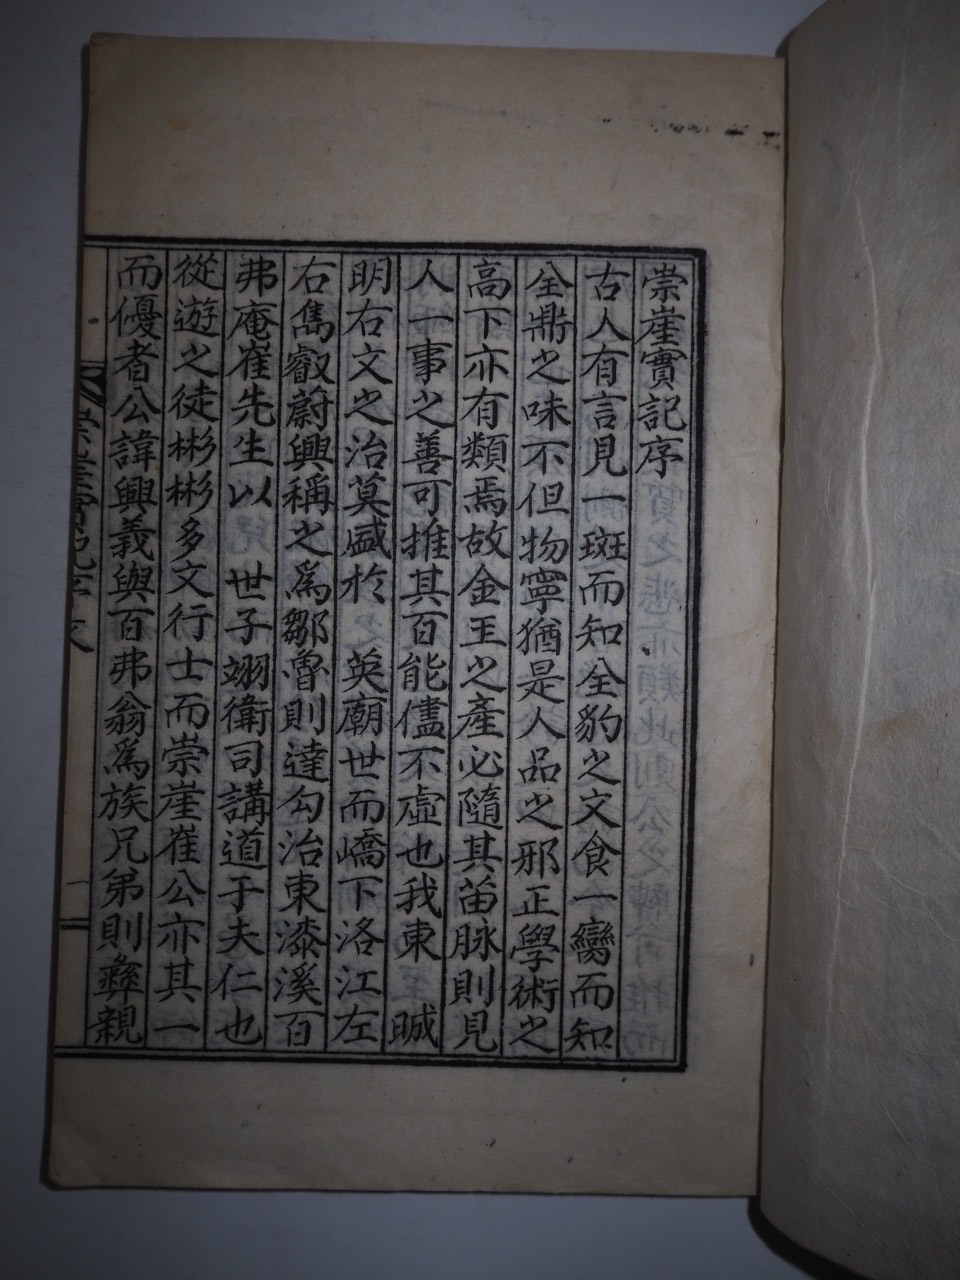 崇崖實記序
古人有言見一斑而知全豹之文食一臠而知
全鼎之味不但物寧猶是人品之邪正學術之
高下亦有類焉故金玉之產必隨其苗脉則見
人一事之善可推其百能儘不虛也我東　晠
明右文之治莫盛於　英廟世而嶠下洛江左
右雋叡蔚興稱之爲鄒魯則達勾治東漆溪百
弗庵崔先生以　世子翊衛司講道于夫仁也
從遊之徒彬彬多文行士而崇崖崔公亦其一
而優者公諱興義與百弗翁爲族兄弟則彜親
崇崖實記序文
一